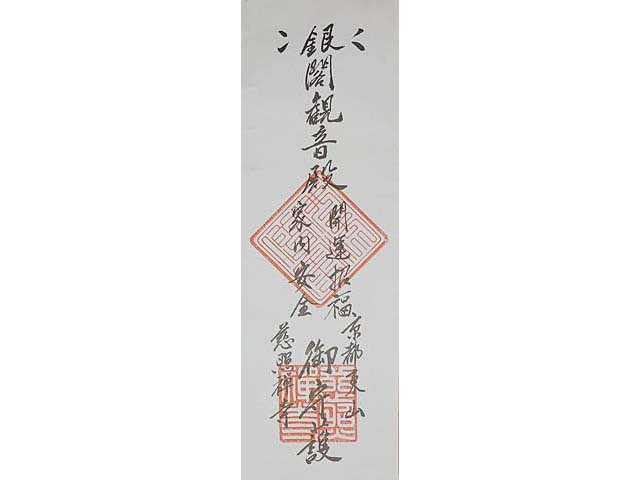 銀閣観音殿
開運招福
家内安全
京都東山
御守護
慈照禅寺